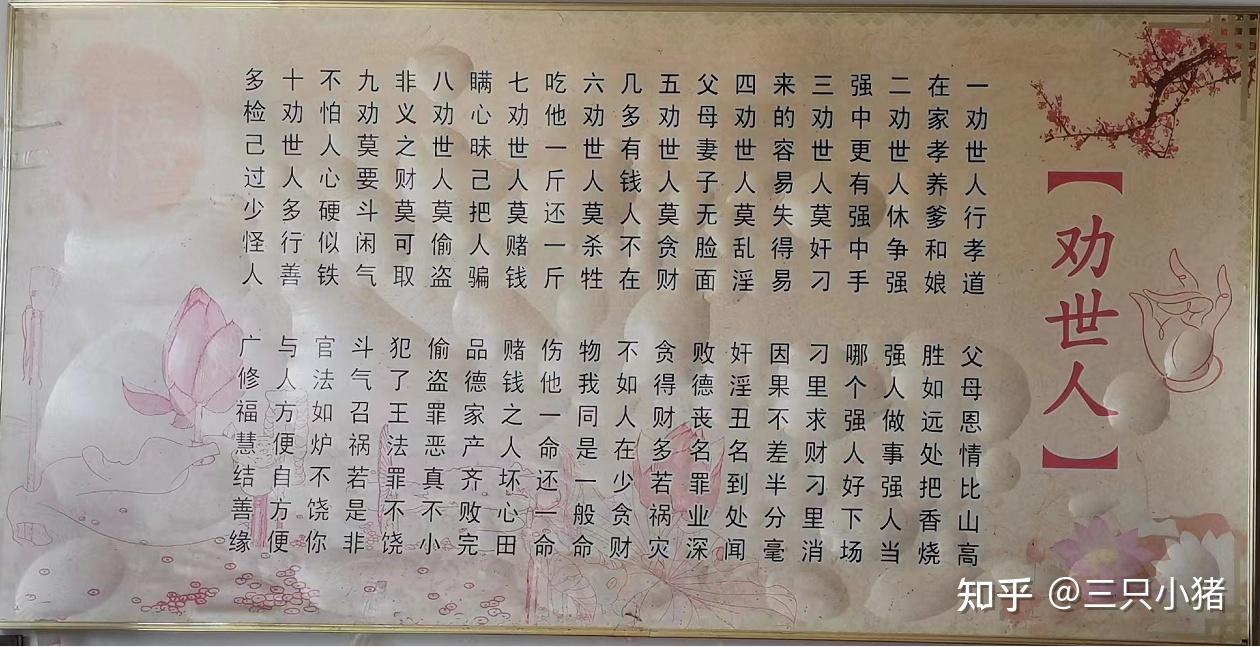 【劝世人】
一劝世人行孝道
父母恩情比山高
在家孝养爹和娘
胜如远处把香烧
二劝世人休争强
强人做事强人当
强中更有强中手
哪个强人好下场
三劝世人莫奸刁
刁里求财刁里消
来的容易失得易
因果不差半分毫
四劝世人莫乱淫
奸淫丑名到处闻
父母妻子无脸面
败德丧名罪业深
五劝世人莫贪财
贪得财多若祸灾
几多有钱人不在
不如人在少贪财
六劝世人莫杀牲
物我同是一般命
吃他一斤还一斤
伤他一命还一命
七劝世人莫赌钱
赌钱之人坏心田
瞒心昧己把人骗
品德家产齐败完
八劝世人莫偷盗
偷盗罪恶真不小
非义之财莫可取
犯了王法罪不饶
九劝莫要斗闲气
斗气召祸若是非
不怕人心硬似铁
官法如炉不饶你
十劝世人多行善
与人方便自方便
多检己过少怪人
广修福慧结善缘
知乎 @三只小猪